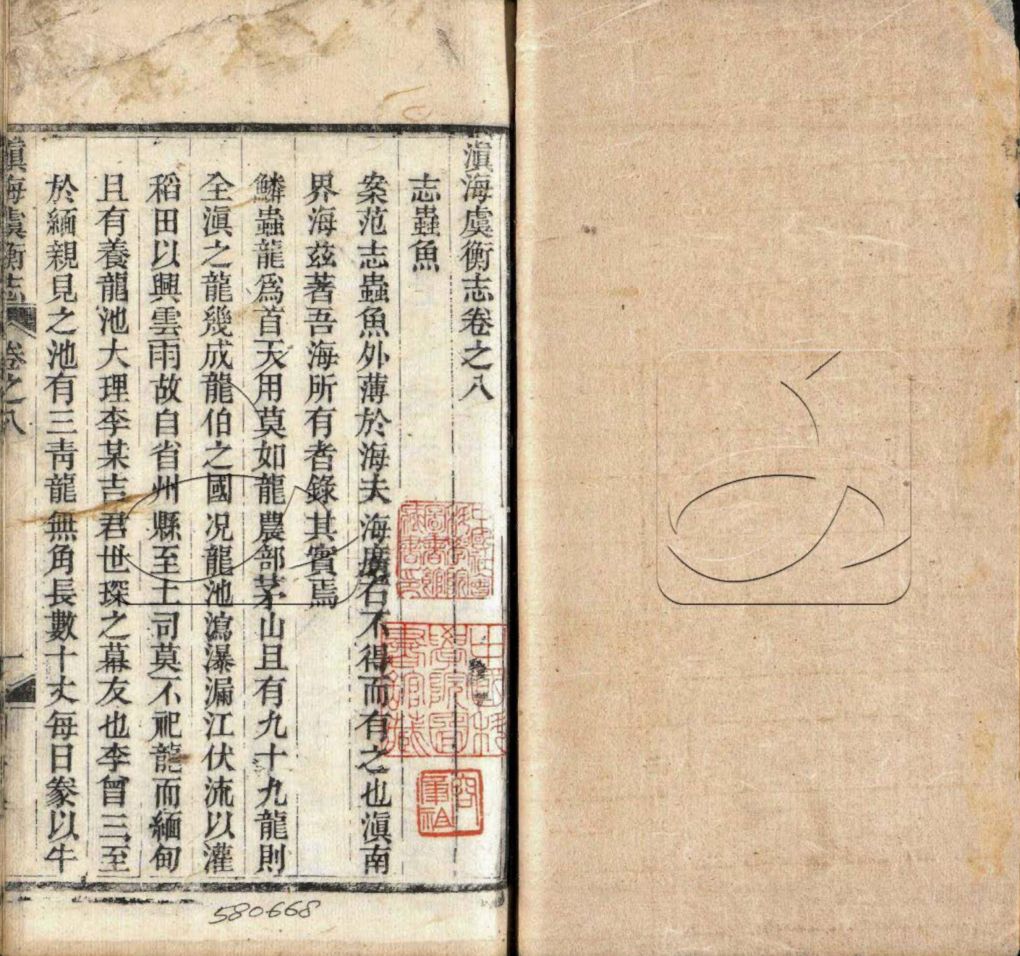 滇海虞衡志卷之八
志蟲魚
案范志蟲魚外薄於海夫海廣右不得而有之也滇南
界海茲著吾海所有者錄其實焉
鱗蟲龍爲首天用莫如龍農部茅山且有九十九龍則
全滇之龍幾成龍伯之國況龍池瀉瀑漏江伏流以灌
稻田以興雲雨故自省州縣至土司莫不祀龍而緬甸
且有養龍池大理李某吉君世琛之幕友也李曾三至
於緬親見之池有三靑龍無角長數十丈每日豢以牛
滇海虞衡志
卷之八
一
580668